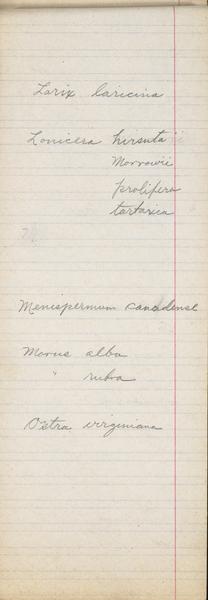 Larix laricina
Lonicera hirsuta
Morrowii
prolifera
tartarica
Menispermum canadense
Morus alba
" rubra
Ostra virginiana